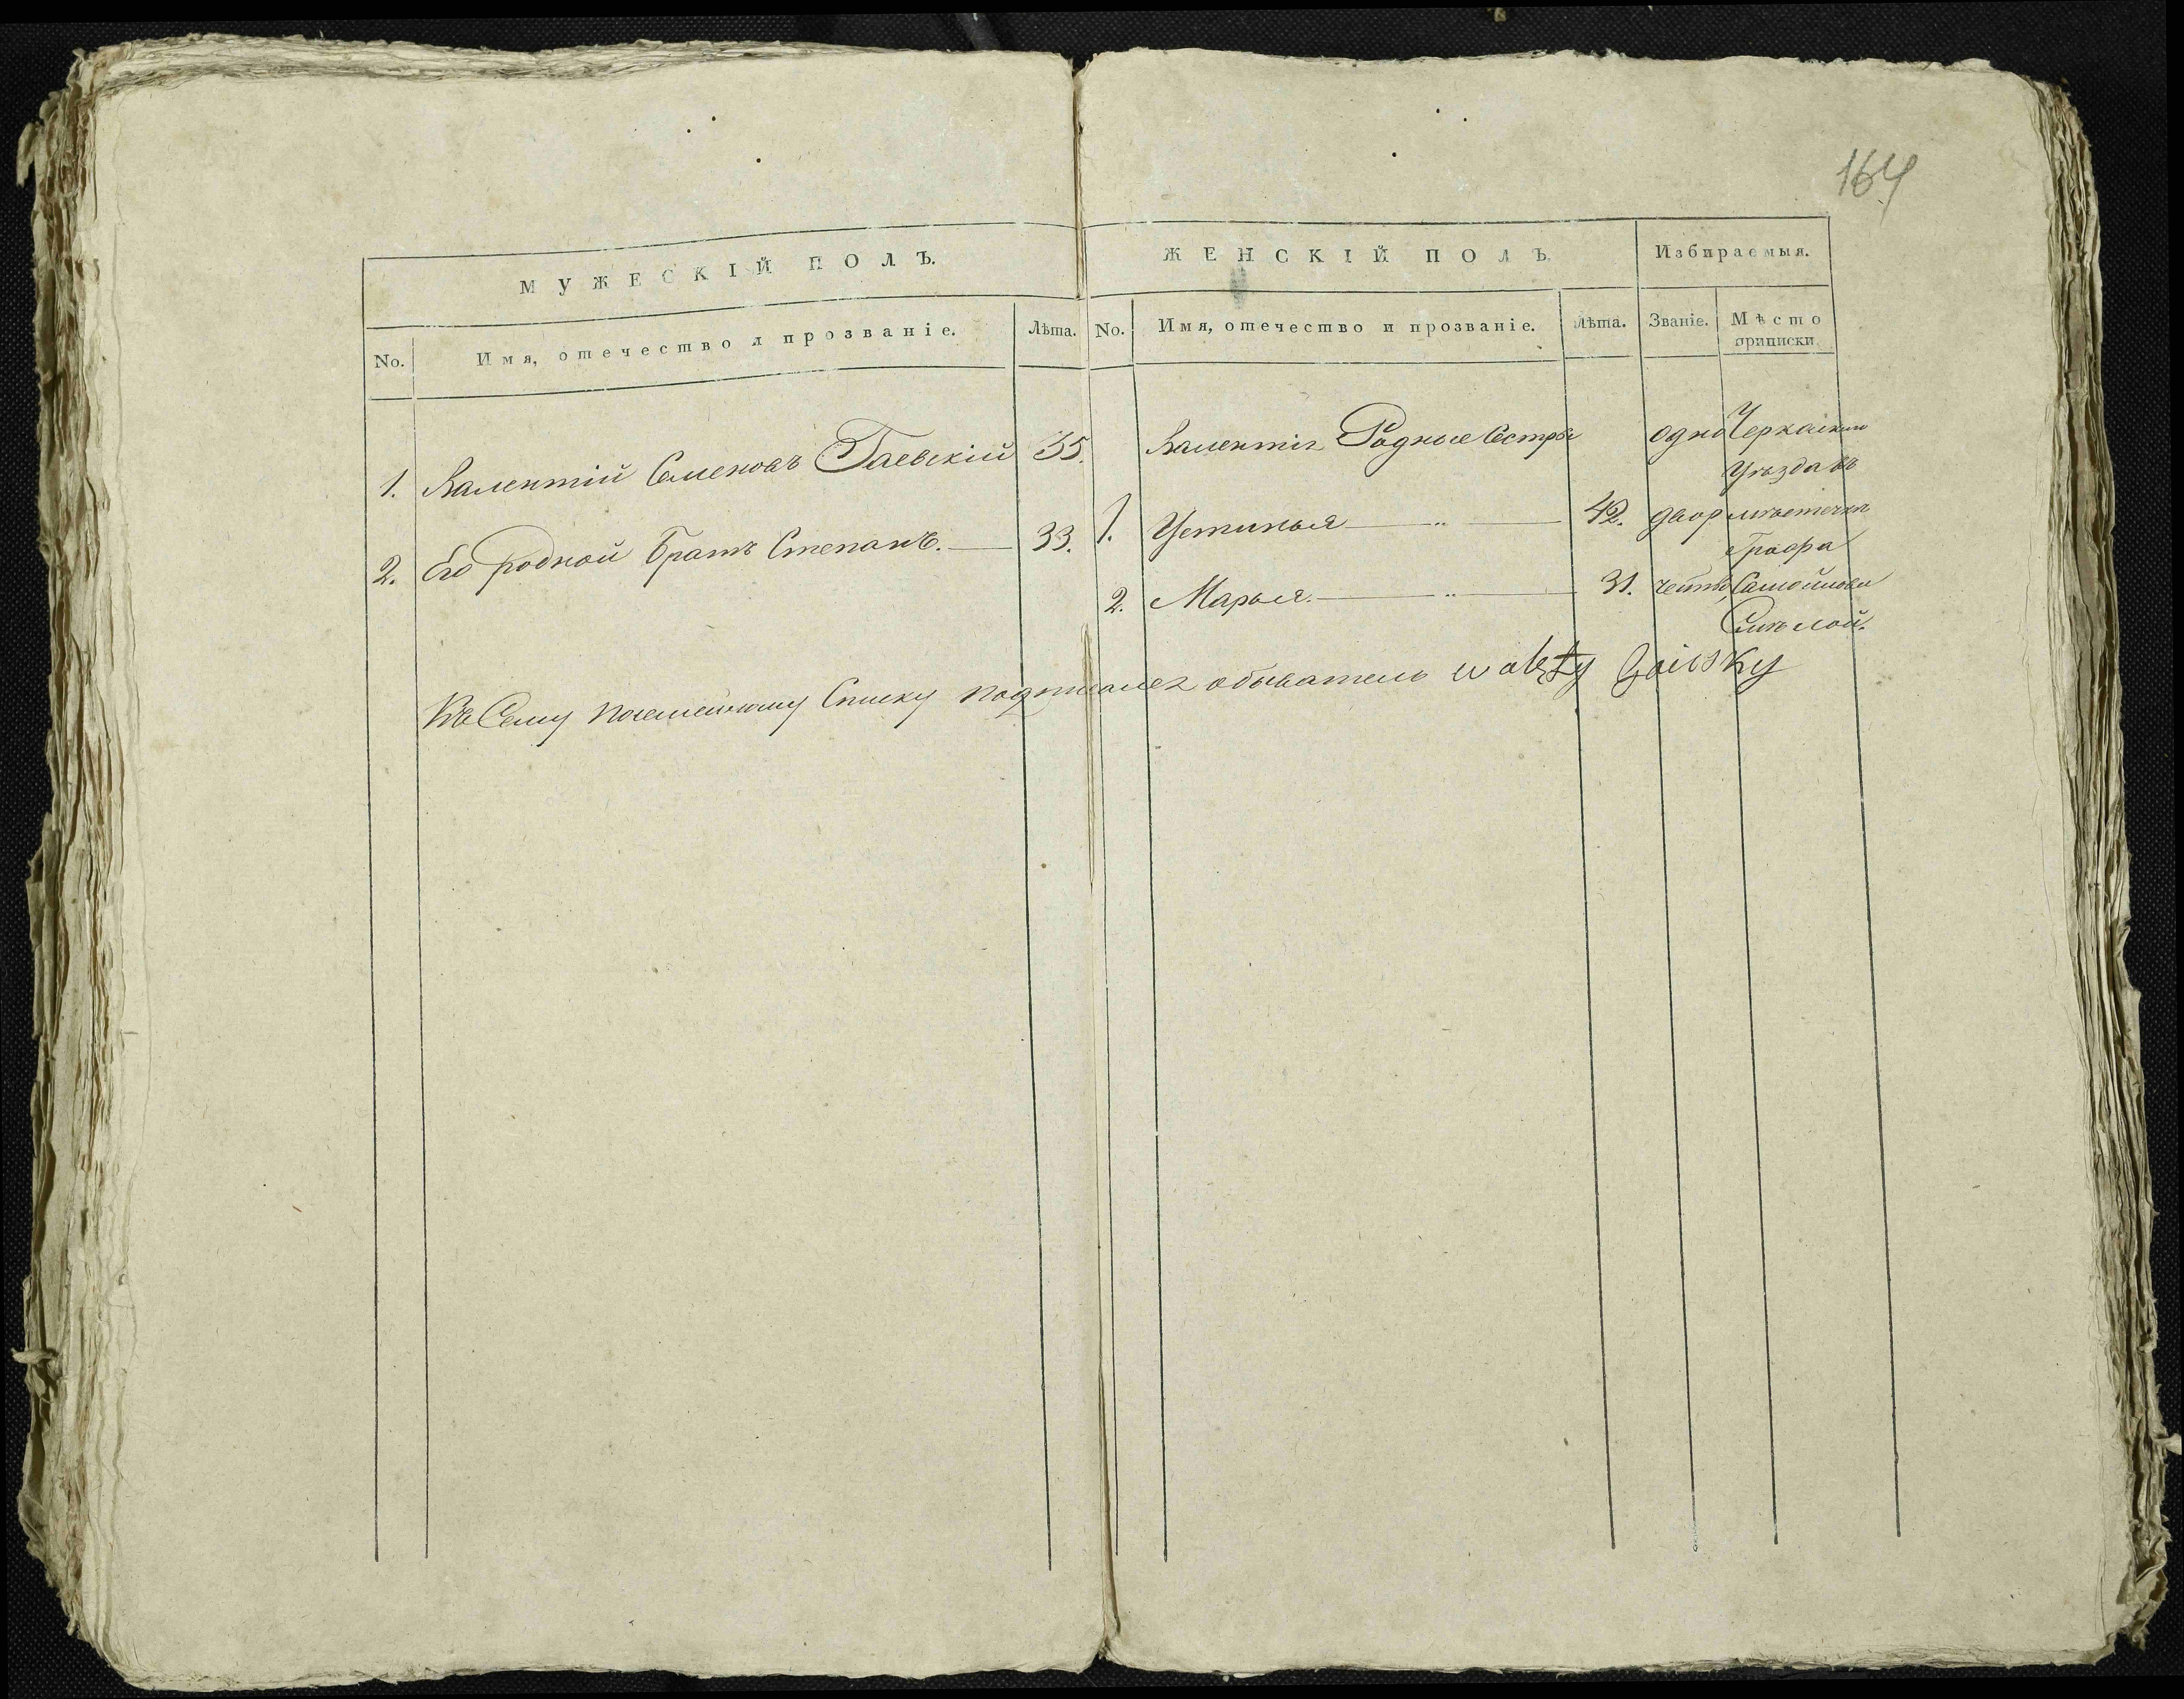 164
МУЖЕСКІЙ ПОЛЪ.
No. Имя, отечество и прозваніе. Лѣта.
1. Валентій Семеновъ Гаевскій 35.
2. Его родной братъ Степанъ. 33.
ЖЕНСКІЙ ПОЛЪ. Избираемыя.
No. Имя, отечество и прозваніе. Лѣта. Званіе. Мѣсто
приписки.
Валентія Родные Сестры одно Черкаскаго
Уѣзда въ
1. Устинья 42. двор мѣстечки
Графа
2. Марья. 31. Самойлова
Смѣлой.
Къ Сему посемейному Списку подписался обыватель walęty Gaiesky